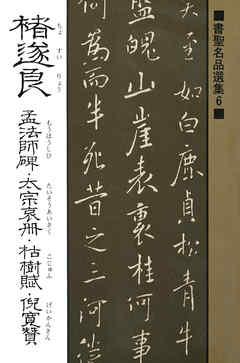 ■書聖名品選集6■
矣至如白鹿貞松青牛
盤魄山崖表裏桂何事
何爲而半死昔之三河徙
褚遂良
ちょ すい りょう
孟法師碑・太宗哀冊・枯樹賦・倪寛賛
もうほうしひ たいそうあいさく こじゅふ げいかんさん